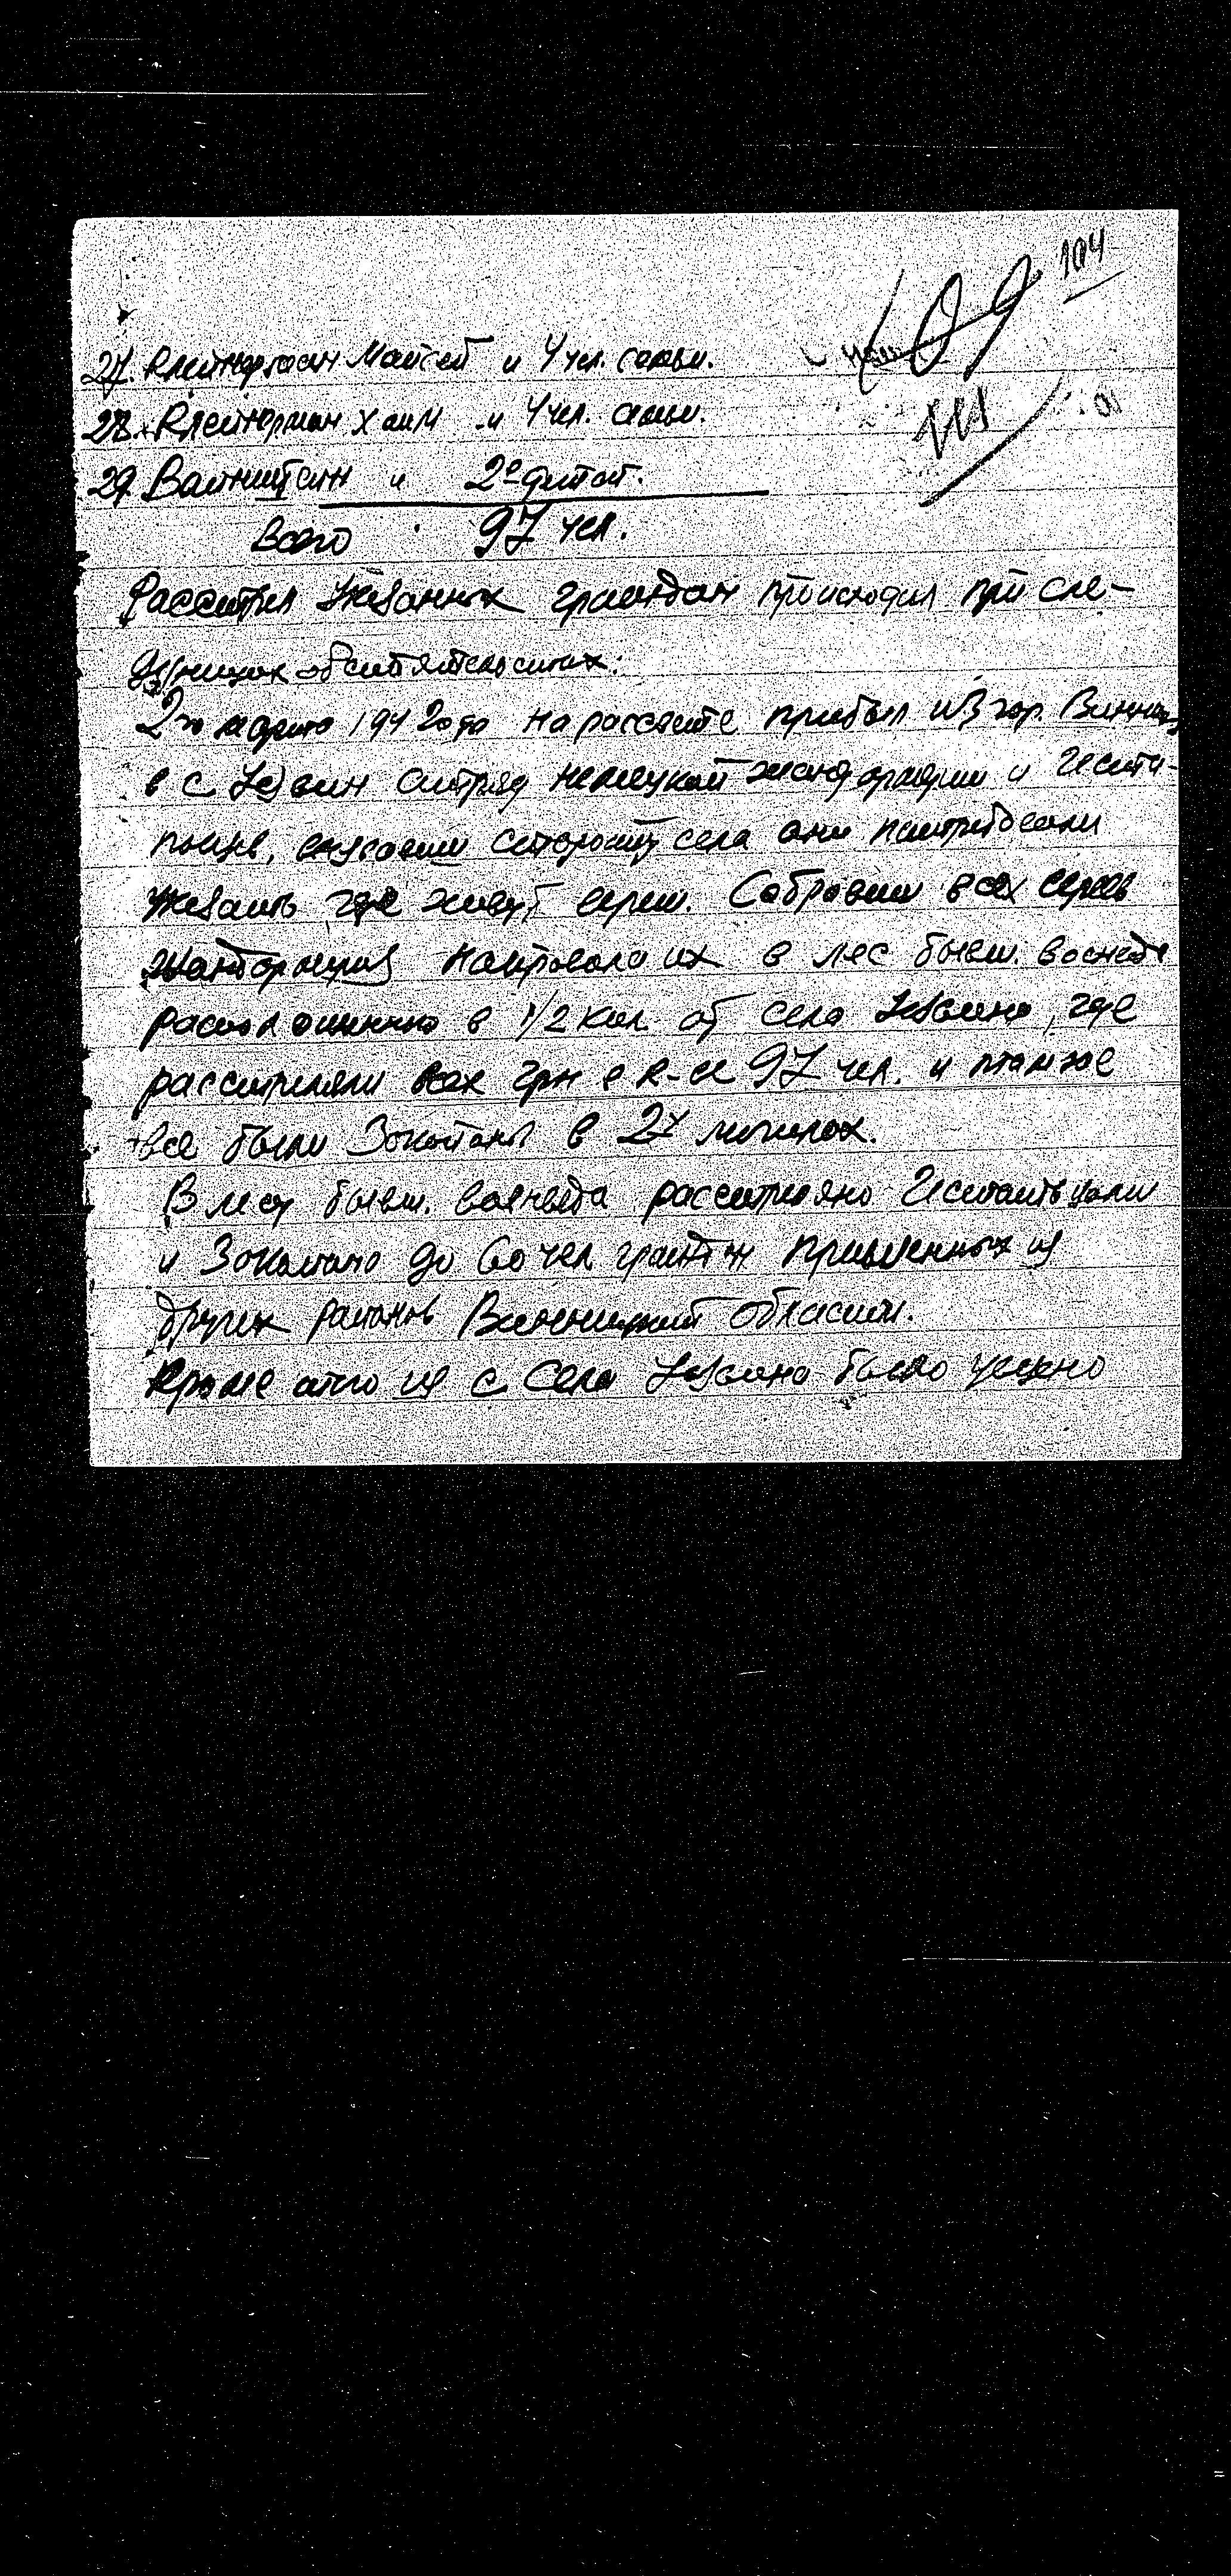 104
109
27. Клейнерман Мойсей и 4 чел. семьи.
28. Клейнерман Хаим и 4 чел. семьи.
29. Вайнштейн и 2е детей.
Всего 97 чел.
Расстрел указанных граждан происходил при сле-
дующих обстоятельствах:
2го 1942 года на рассвете прибыл из гор. Винницы
в с отряд немецкой жандармерии и Геста-
повцы, старосту села они потребовали
указать где живут евреи. Собравши всех евреев
жандармерия направила их в лес бывш. военведа
расположенного в 1/2 кил. от села где
расстреляли всех гр-н в к-ве 97 чел. и там же
все были закопаны в 2х могилах.
В лесу бывш. военведа расстреляно Гестаповцами
и закопано до 60 чел граждан из
других районов Винницкой области.
Кроме этого из с. села было угнано